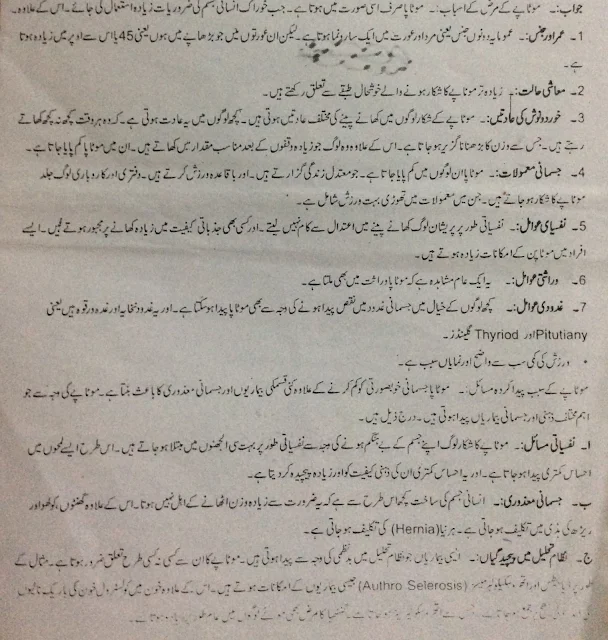 جواب:۔ موٹاپے کے مرض کے اسباب:۔ موٹاپا صرف اسی صورت میں ہوتا ہے۔ جب خوراک انسانی جسم کی ضروریات زیادہ استعمال کی جائے۔ اس کے علاوہ۔
1۔ عمر اور جنس:۔ عموماً یہ دونوں جنس یعنی مرد اور عورت میں ایک سا رونما ہوتا ہے۔ لیکن ان عورتوں میں جو بڑھاپے میں ہوں یعنی 45 یا اس سے اوپر میں زیادہ ہوتا
ہے۔
2۔ معاشی حالت:۔ زیادہ تر موٹاپے کا شکار ہونے والے خوشحال طبقے سے تعلق رکھتے ہیں۔
3۔ خوردونوش کی عادتیں:۔ موٹاپے کے شکار لوگوں میں کھانے پینے کی مختلف عادتیں ہوتی ہیں۔ کچھ لوگوں میں یہ عادت ہوتی ہے۔ کہ وہ ہر وقت کچھ نہ کچھ کھاتے
رہتے ہیں۔ جس سے وزن کا بڑھنا ناگزیر ہو جاتا ہے۔ اس کے علاوہ وہ لوگ جو زیادہ وقفوں کے بعد مناسب مقدار میں کھاتے ہیں۔ ان میں موٹاپا کم پایا جاتا ہے۔
4۔ جسمانی معمولات:۔ موٹاپا ان لوگوں میں کم پایا جاتا ہے۔ جو معتدل زندگی گزارتے ہیں۔ اور باقاعدہ ورزش کرتے ہیں۔ دفتری اور کاروباری لوگ جلد
موٹاپے کا شکار ہو جاتے ہیں۔ جن میں معمولات میں تھوڑی بہت ورزش شامل ہے۔
5۔ نفسیاتی عوامل:۔ نفسیاتی طور پر پریشان لوگ کھانے پینے میں اعتدال سے کام نہیں لیتے۔ اور کسی بھی جذباتی کیفیت میں زیادہ کھانے پر مجبور ہوتے ہیں۔ ایسے
افراد میں موٹاپن کے امکانات زیادہ ہوتے ہیں۔
6۔ وراثتی عوامل:۔ یہ ایک عام مشاہدہ ہے کہ موٹاپا وراثت میں بھی ملتا ہے۔
7۔ غدودی عوامل:۔ کچھ لوگوں کے خیال میں جسمانی غدود میں نقص پیدا ہونے کی وجہ سے بھی موٹاپا پیدا ہو سکتا ہے۔ اور یہ غدود نخامیہ اور غدہ ورقوہ ہیں یعنی
Pitutiany اور Thyriod گلینڈز۔
• ورزش کی کمی سب سے واضح اور نمایاں سبب ہے۔
موٹاپے کے سبب پیدا کردہ مسائل:۔ موٹاپا جسمانی خوبصورتی کو کم کرنے کے علاوہ کئی قسم کی بیماریوں اور جسمانی معذوری کا باعث بنتا ہے۔ موٹاپے کی وجہ سے جو
اہم مختلف ذہنی اور جسمانی بیماریاں پیدا ہوتی ہیں۔ درج ذیل ہیں۔
ا۔ نفسیاتی مسائل:۔ موٹاپے کا شکار لوگ اپنے جسم کے بے ہنگم ہونے کی وجہ سے نفسیاتی طور پر بہت سی الجھنوں میں مبتلا ہو جاتے ہیں۔ اس طرح ایسے لوگوں میں
احساس کمتری پیدا ہو جاتا ہے۔ اور یہ احساس کمتری ان کی ذہنی کیفیت کو اور زیادہ پیچیدہ کر دیتا ہے۔
ب۔ جسمانی معذوری:۔ انسانی جسم کی ساخت کچھ اس طرح سے ہے کہ یہ ضرورت سے زیادہ وزن اٹھانے کے اہل نہیں ہوتا۔ اس کے علاوہ گھٹنوں، کولہو اور
ریڑھ کی ہڈی میں تکلیف ہو جاتی ہے۔ ہرنیا (Hernia) کی تکلیف ہو جاتی ہے۔
ج۔ نظام تحلیل میں پیچیدگیاں:۔ ایسی بیماریاں جو نظام تحلیل میں بدنظمی کی وجہ سے پیدا ہوتی ہیں۔ موٹاپے کا ان سے کسی نہ کسی طرح تعلق ضرور ہوتا ہے۔ مثال کے
طور پر (Authro Selerosis) جیسی بیماریوں کے امکانات ہوتے ہیں۔ اس کے علاوہ خون میں کولیسٹرول خون کی باریک نالیوں